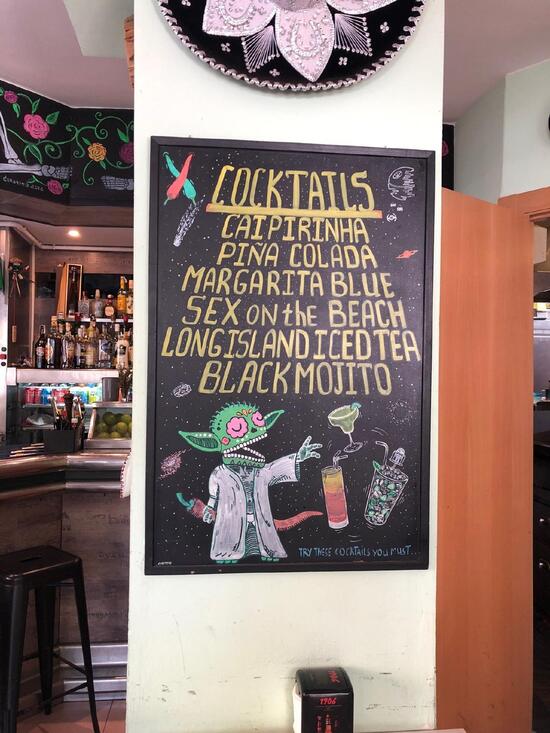 COCKTAILS
CAIPIRINHA
PIÑA COLADA
MARGARITA BLUE
SEX on the BEACH
LONG ISLAND ICED TEA
BLACK MOJITO
TRY THESE COCKTAILS YOU MUST...
1906